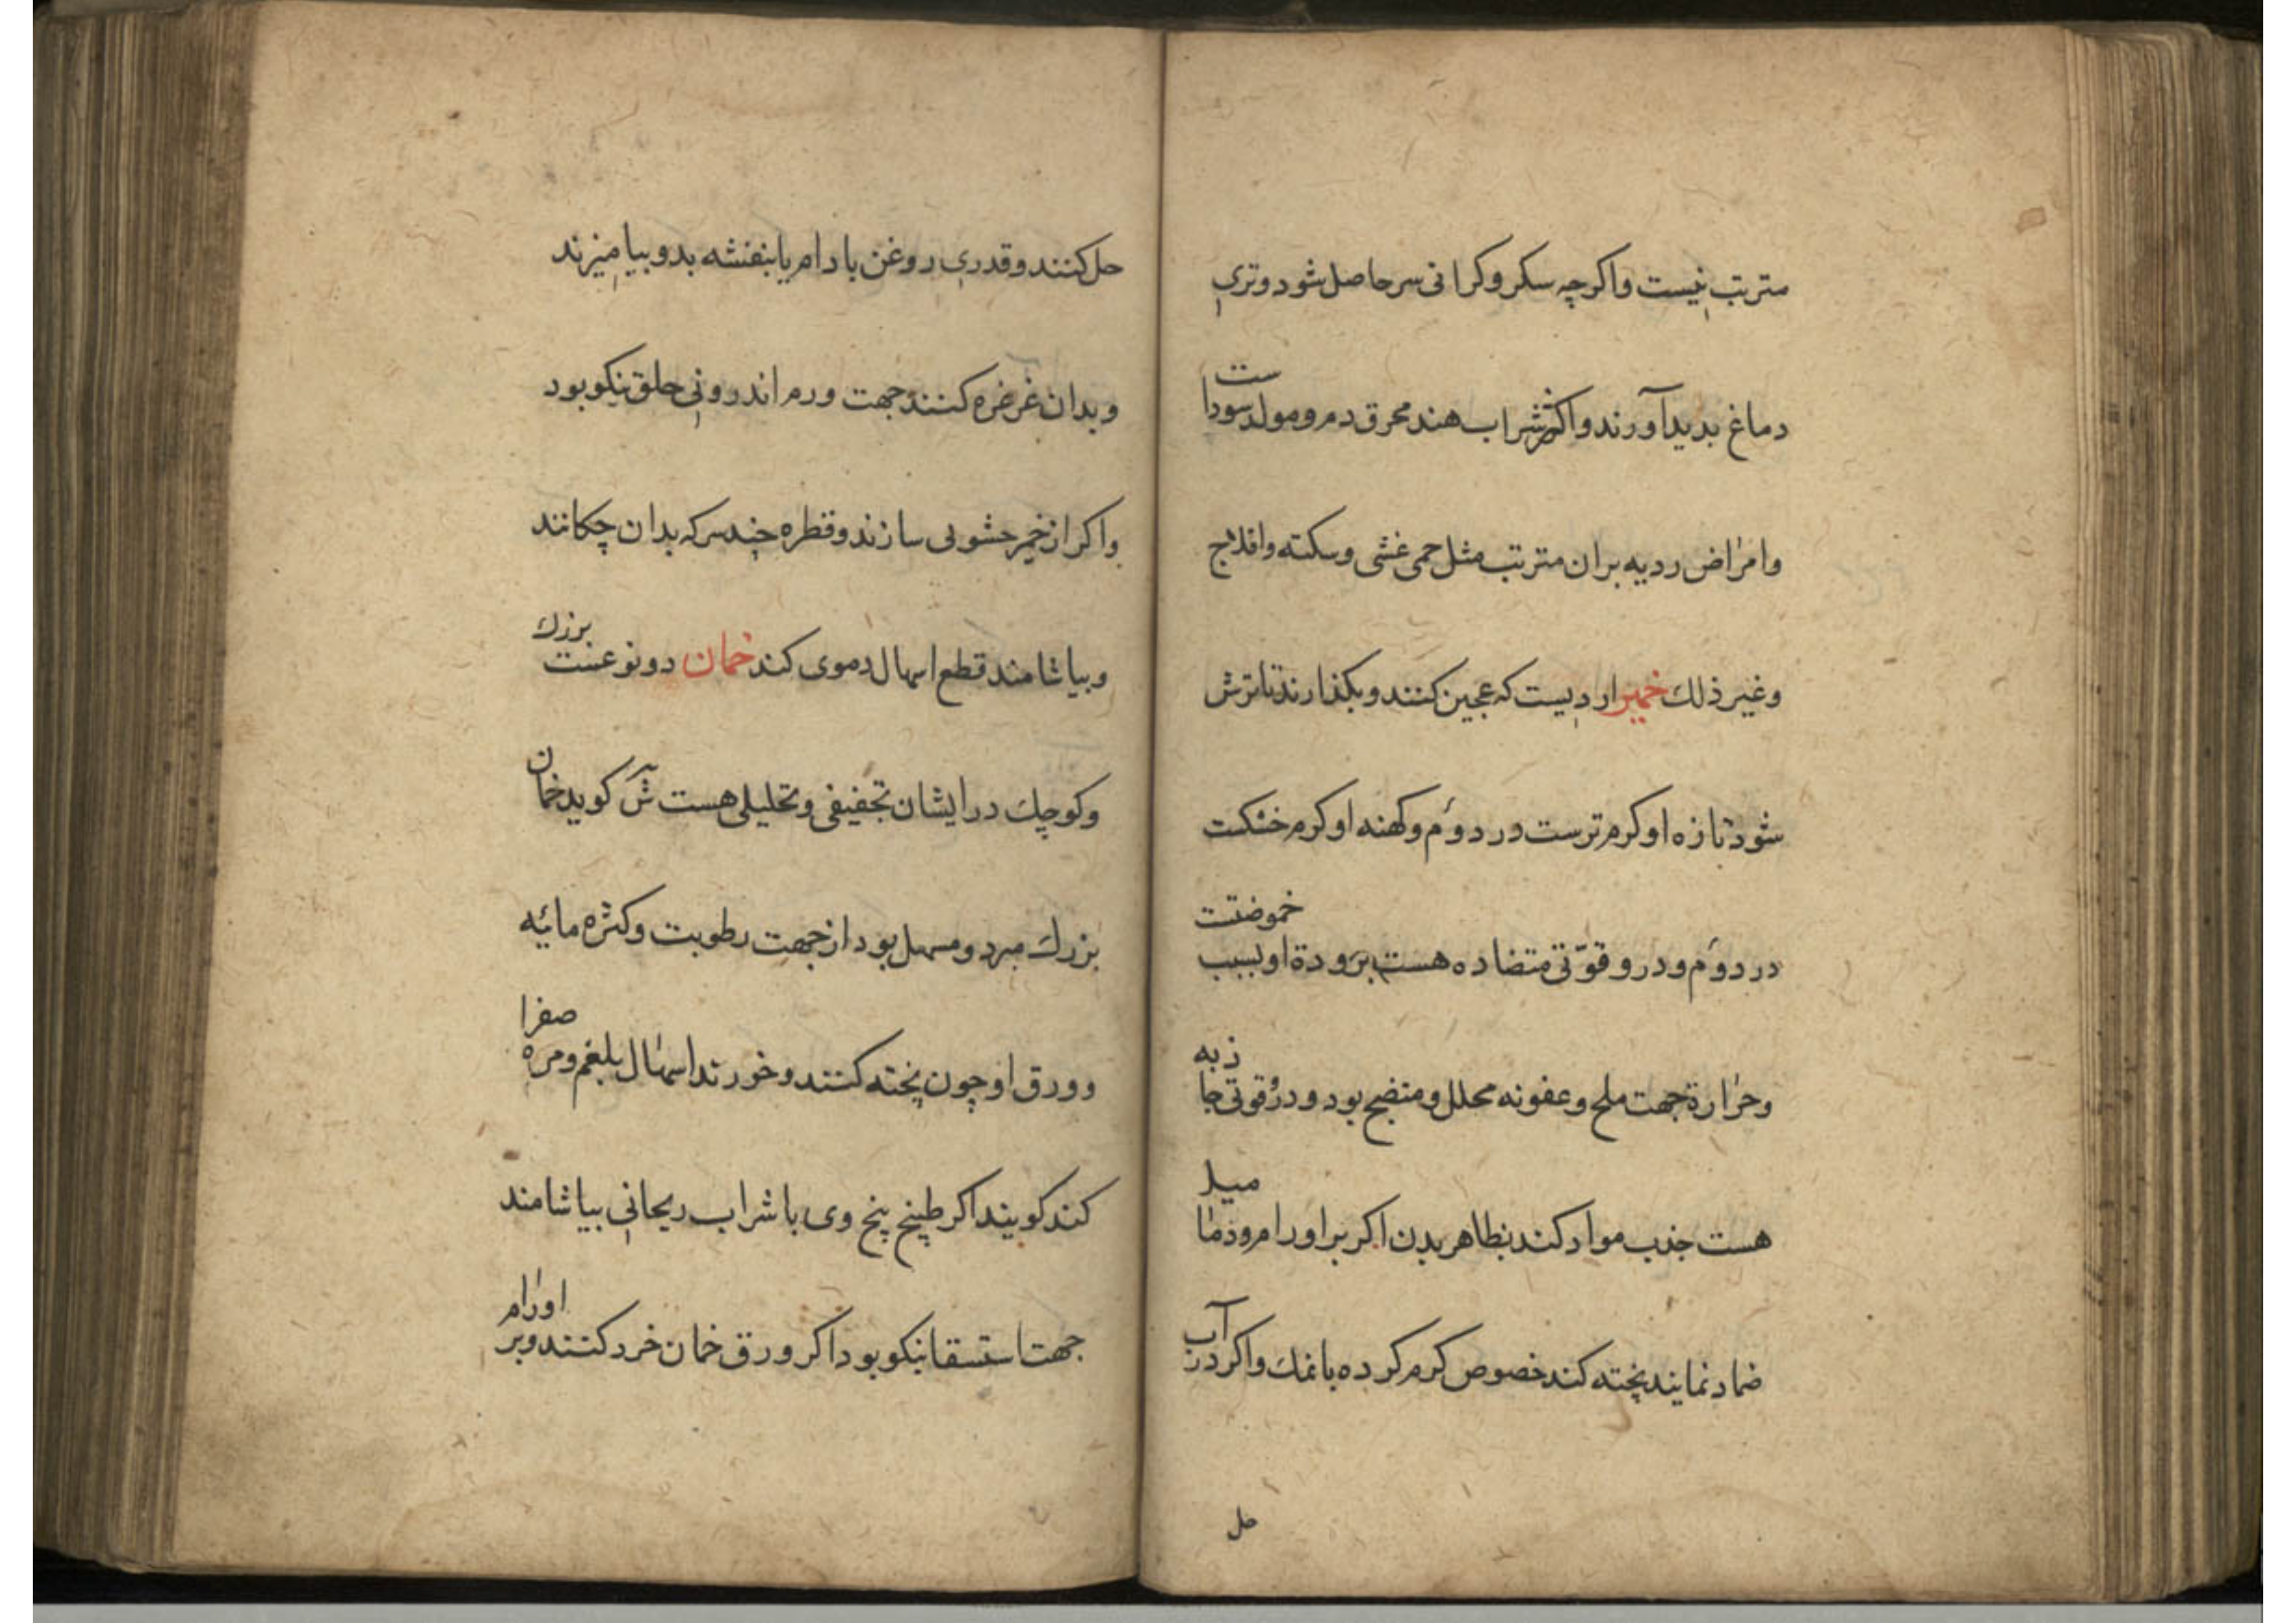 مترتب نیست واکرچه سکر وکرانی سر حاصل شود وتری
دماغ بدید آورند واکثر شراب هند محرق دم ومولد سوداست
وامراض ردیه بران مترتب مثل حمی غشی وسکته وافلاج
وغیر ذلك خمیر اردیست که عجین کنند وبکذارند تا ترش
شود تازه او کرم ترست در دوم وکهنه او کرم خشکست
در دوم ودرو قوتی متضاده هست برودة او بسبب خموضتست
وحرارة جهت ملح وعفونه محلل ومنضج بود ودرو قوتی جاذبه
هست جذب مواد کند بظاهر بدن اکر بر اورام ودمامیل
ضماد نمایند پخته کند خصوص کرم کرده با نمك واکر در آب
حل
حل کنند وقدری روغن بادام یا بنفشه بدو بیامیزند
وبدان غرغره کنند جهت ورم اندرونی حلق نیکو بود
واکر از خمیر حشویی سازند وقطره چند سرکه بدان چکانند
وبیاشامند قطع اسهال دموی کند خمان دو نوعست بزرك
وکوچك در ایشان تجفیفی وتحلیلی هست کوید خمان
بزرك مبرد ومسهل بود از جهت رطوبت وکثره مائیه
وورق او چون پخته کنند وخورند اسهال بلغم ومره صفرا
کند کویند اکر طبیخ بیخ وی با شراب ریحانی بیاشامند
جهت استسقا نیکو بود اکر ورق خمان خرد کنند وبر اورام